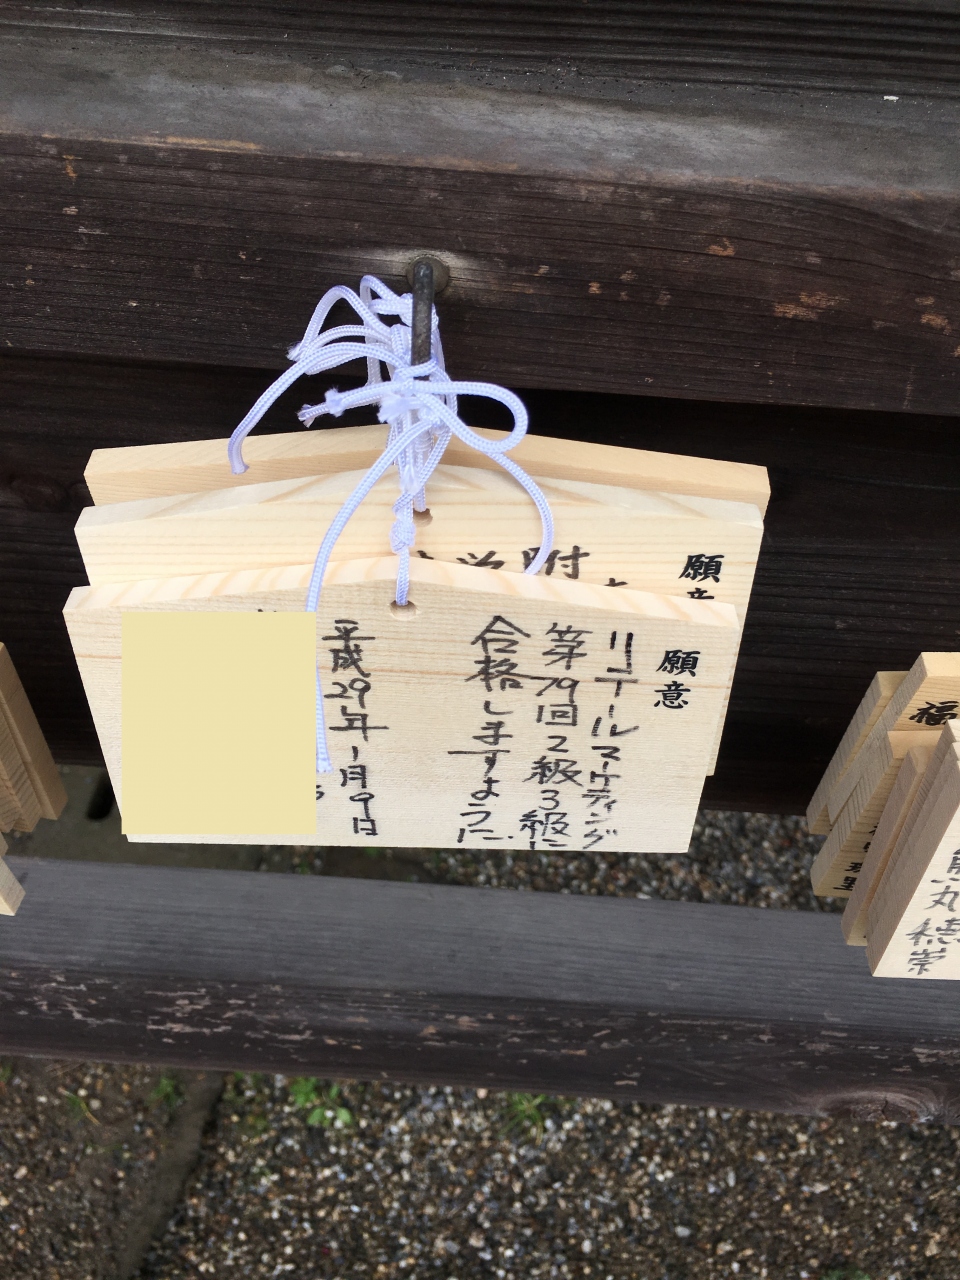 願意
リテールマーケティング
第79回2級3級に
合格しますように。
平成29年1月9日
願意
附
福